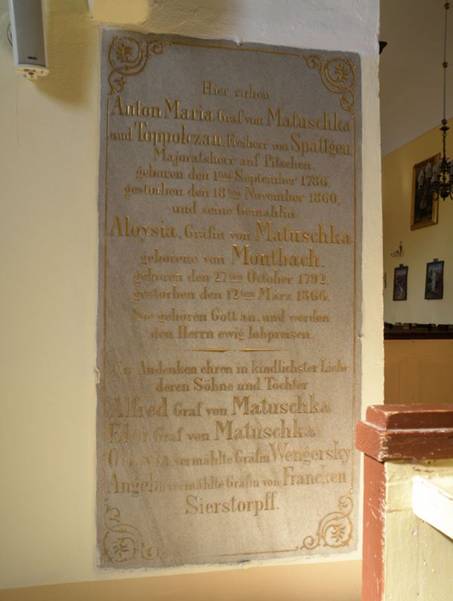 Hier ruhen
Anton Maria Graf von Matuschka
und Toppolczan, Freiherr von Spättgen
Majoratsherr auf Pitschen.
geboren den 1ten September 1786,
gestorben den 18ten November 1860,
und seine Gemahlin
Aloysia, Gräfin von Matuschka
geborene von Montbach.
geboren den 27ten October 1792,
gestorben den 12ten März 1866.
Sie gehören Gott an, und werden
den Herrn ewig lobpreisen.
Andenken ehren in kindlichster Liebe
deren Söhne und Töchter
Alfred Graf von Matuschka
Graf von Matuschka
vermählte Gräfin Wengersky
Angelia vermählte Gräfin von Francken
Sierstorpff.